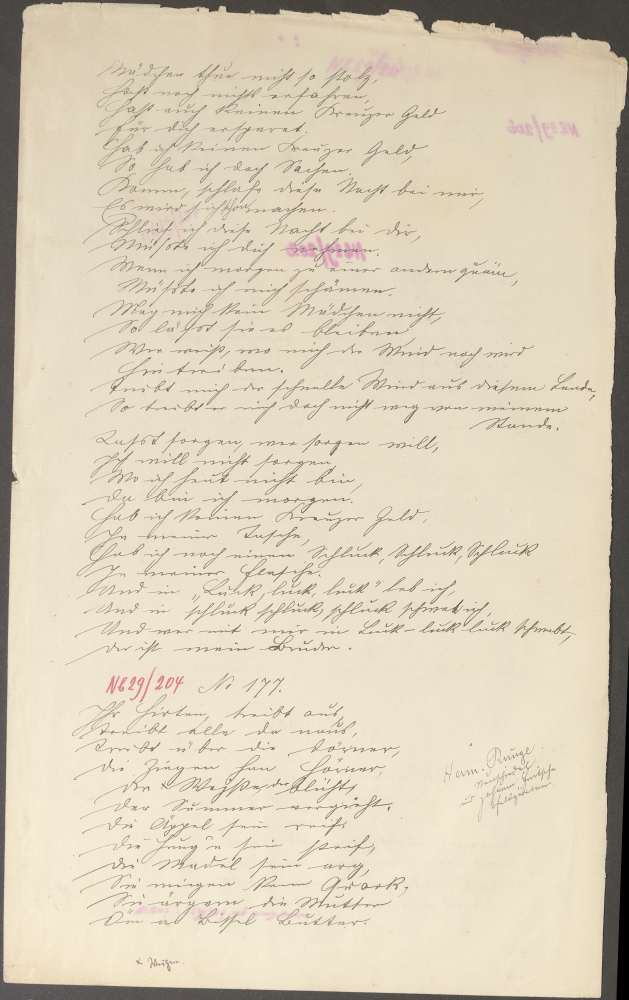 Mädchen thu nicht so stolz,
Hast noch nichts erfahren,
Hast auch keinen Kreuzer Geld
Für dich ersparet.
Hab ich keinen Kreuzer Geld,
So hab ich doch Sachen.
Komm, schlafe diese Nacht bei mir,
Es wird sich schon machen.
Schlief ich diese Nacht bei dir,
Müsste ich dich nehmen.
Wenn ich morgen zu einer andern käm,
Müsste ich mich schämen.
Mag mich kein Mädchen nicht,
So lässt sie es bleiben.
Wer weiß, wo mich der Wind noch wird
hintreiben.
Treibt mich der schnelle Wind aus diesem Lande,
So treibt er mich doch nicht weg von meinem
Stande.
Lasst sorgen, wer sorgen will,
Ich will nicht sorgen,
Wo ich heut nicht bin,
Da bin ich morgen.
Hab ich keinen Kreuzer Geld,
In meiner Tasche,
Hab ich noch einen Schluck, Schluck, Schluck
In meiner Flasche.
Und in „Luck, luck, luck" leb ich,
Und in schluck schluck, schluck schweb ich,
Und wer mit mir in Luck-luck luck schwebt,
Der ist mein Bruder.
N629/204 No 177.
Ihr Hirten, treibt aus,
Treibt alle da naus,
Treibt über die Dörner,
Die Ziegen han Hörner,
Der x Weißes blüht,
Der Summer vergieht.
Die Äppel sein reif,
Die Jung'n sein steif,
Die Madel sein arg,
Sie mögen kein Quark,
Sie ärgern die Mutter
Üm a Bissel Butter.
Herm. Runge
x Weizen
N629/206